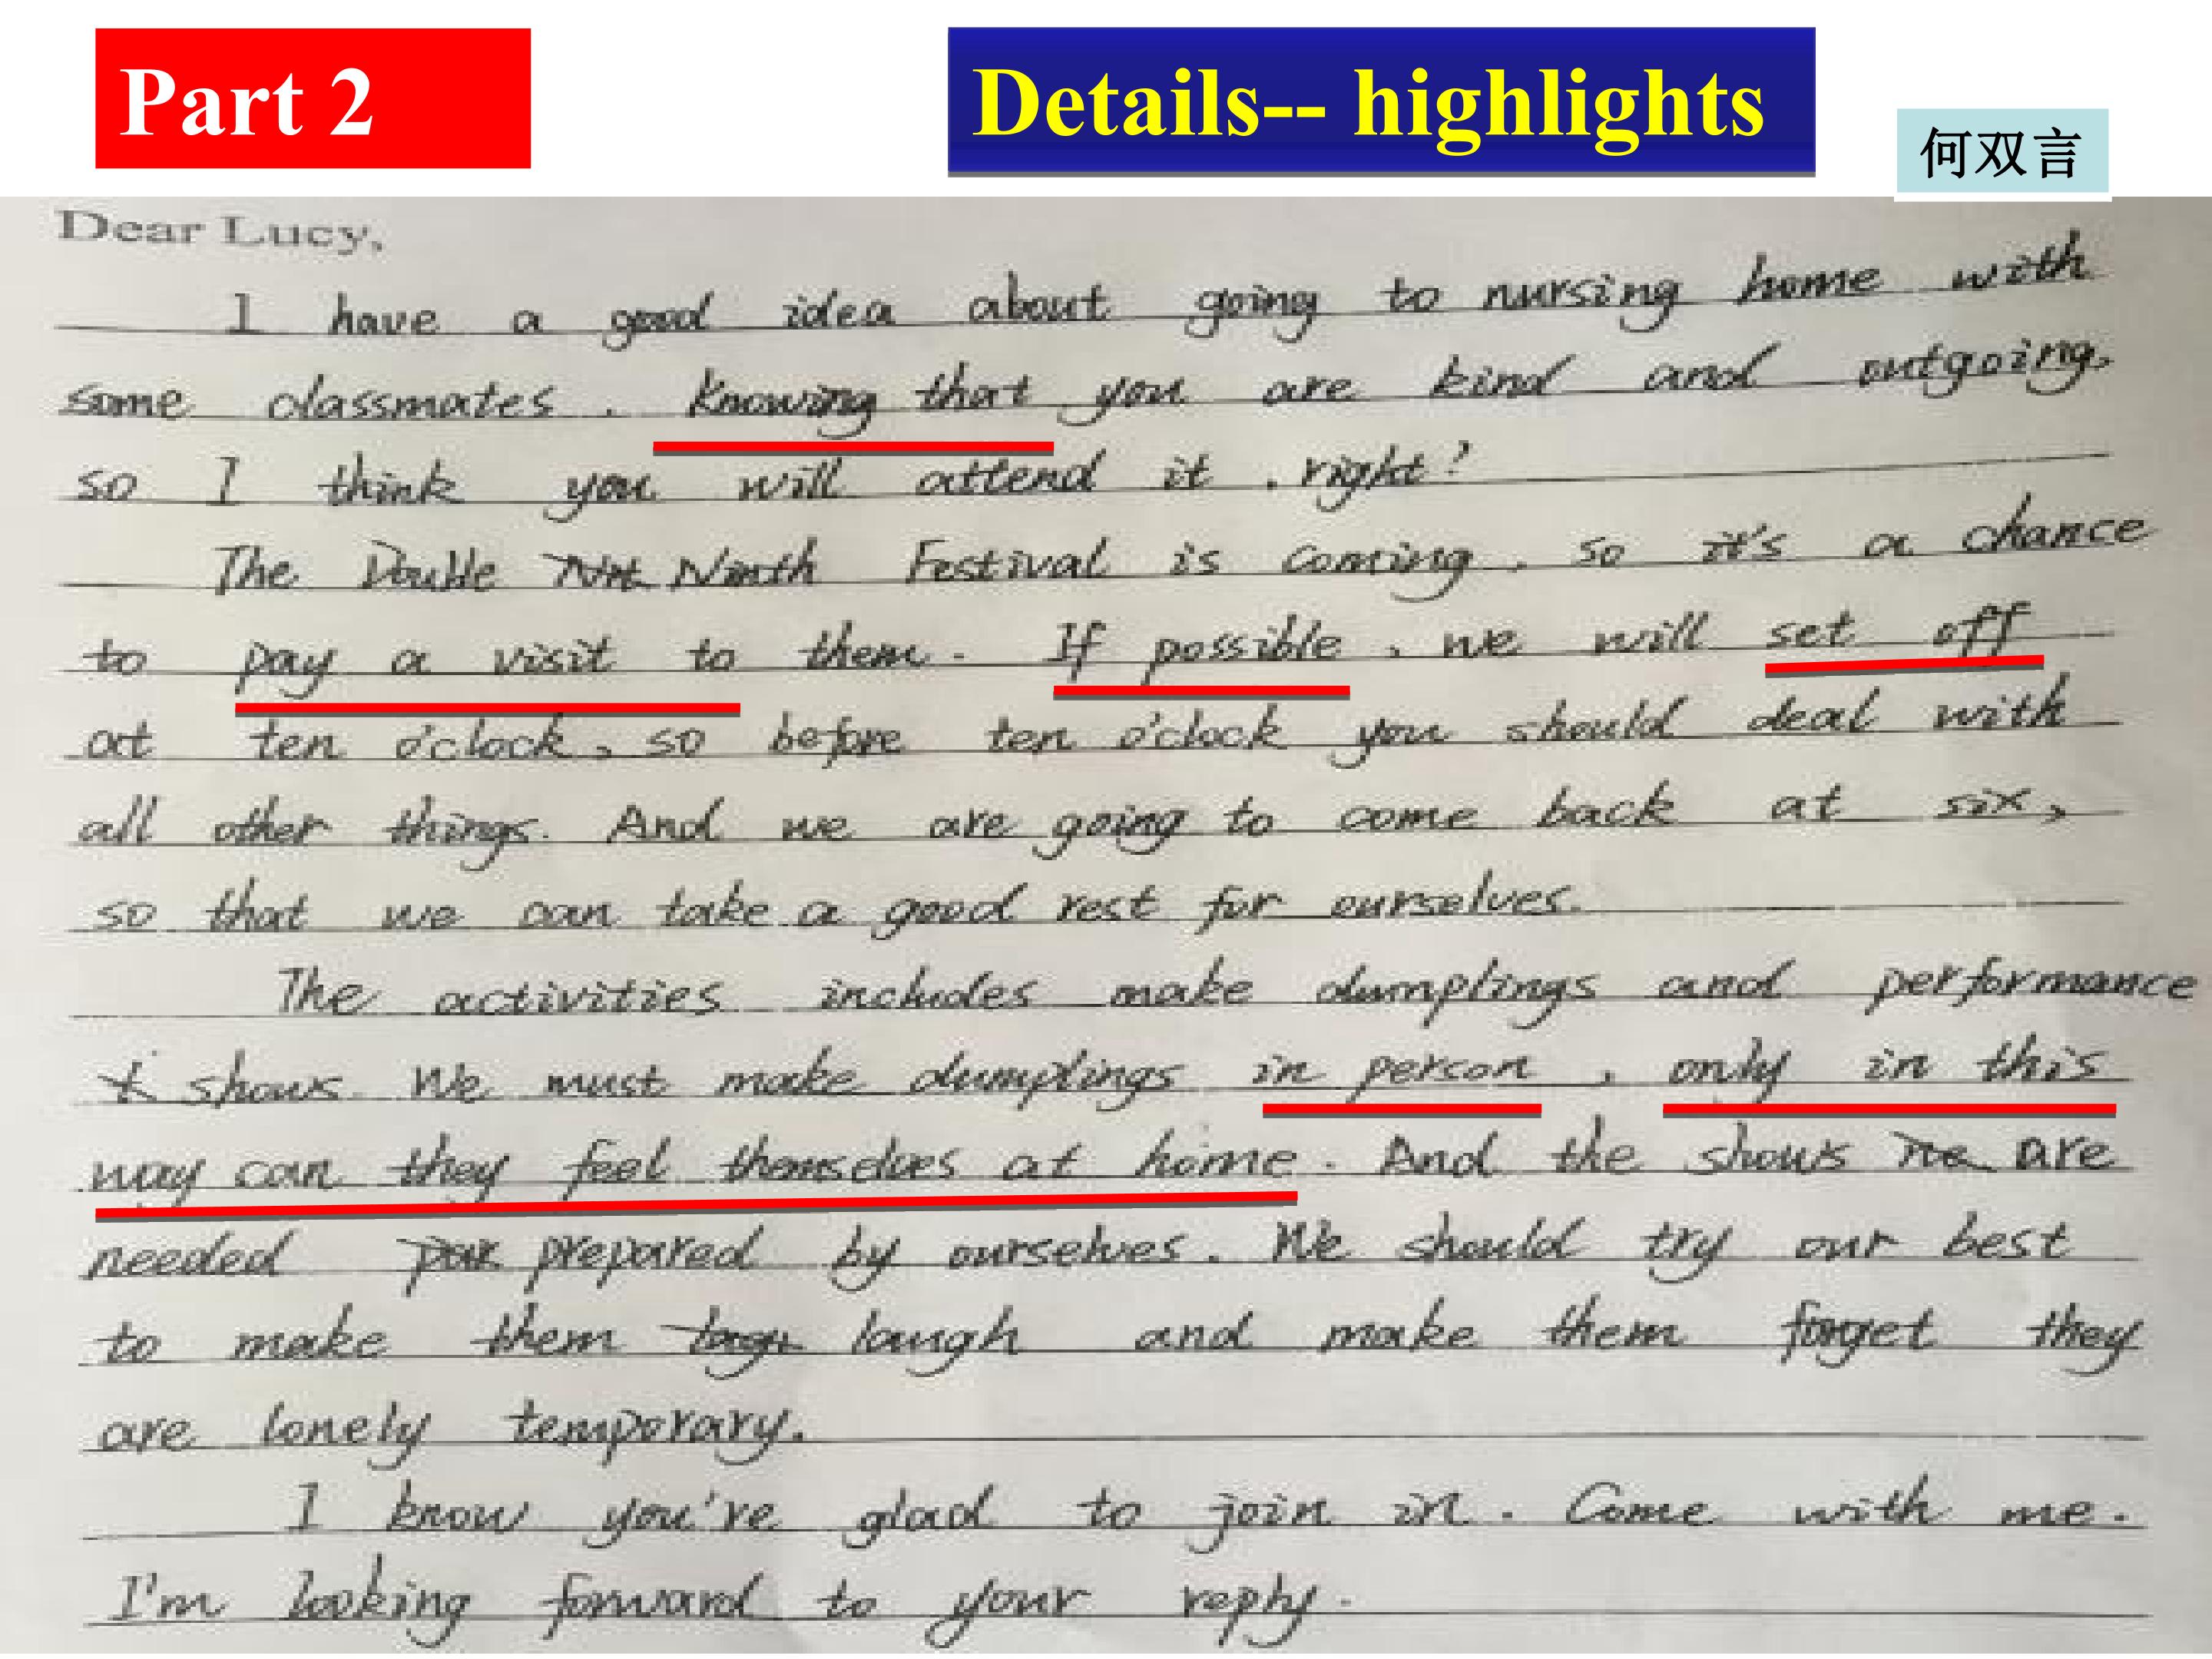 Part 2
Details-- highlights
何双言
Dear Lucy,
I have a good idea about going to nursing home with
some classmates. Knowing that you are kind and outgoing,
so I think you will attend it, right?
The Double Ninth Festival is coming, so it's a chance
to pay a visit to them. If possible, we will set off
at ten o'clock, so before ten o'clock you should deal with
all other things. And we are going to come back at six,
so that we can take a good rest for ourselves.
The activities includes make dumplings and performance
shows. We must make dumplings in person, only in this
way can they feel themselves at home. And the shows are
needed prepared by ourselves. We should try our best
to make them laugh and make them forget they
are lonely temporary.
I know you're glad to join in. Come with me.
I'm looking forward to your reply.